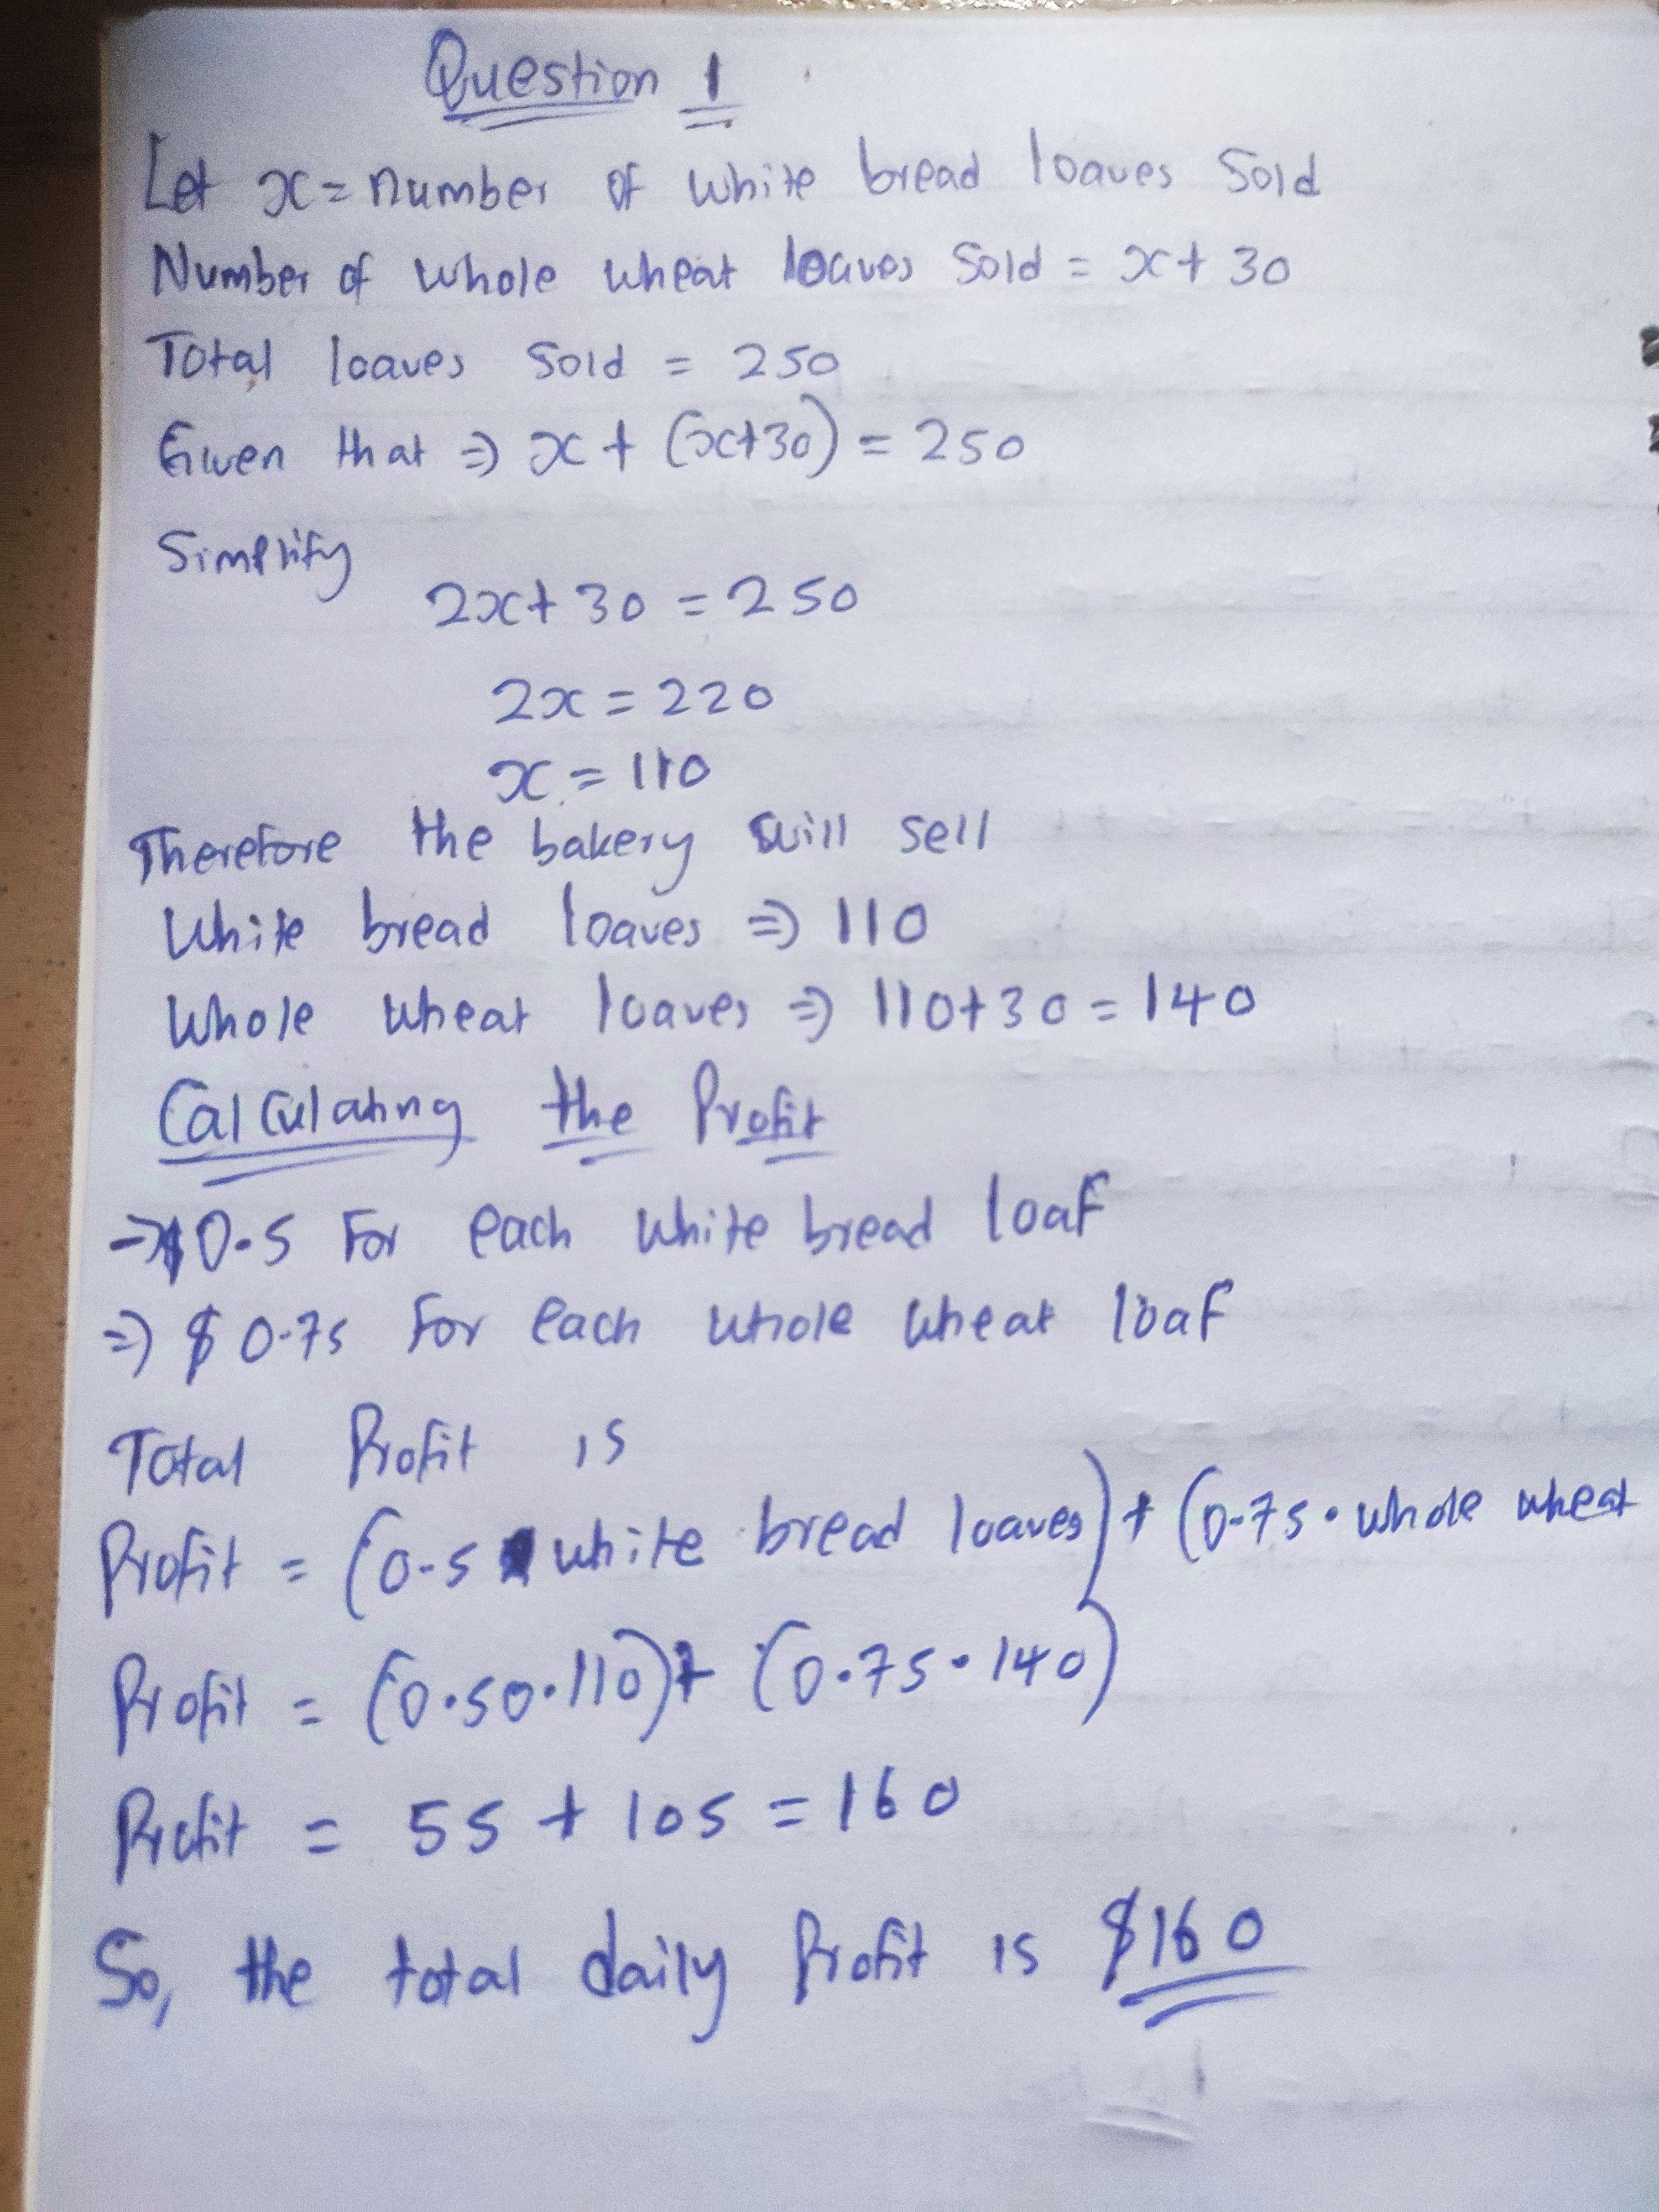 Question 1
Let x = number of white bread loaves sold
Number of whole wheat loaves sold = x + 30
Total loaves sold = 250
Given that ⇒ x + (x+30) = 250
Simplify
2x + 30 = 250
2x = 220
x = 110
Therefore the bakery will sell
White bread loaves ⇒ 110
Whole wheat loaves ⇒ 110 + 30 = 140
Calculating the Profit
→ $0.5 for each white bread loaf
⇒ $0.75 for each whole wheat loaf
Total Profit is
Profit = (0.5 white bread loaves) + (0.75 · whole wheat
Profit = (0.50 · 110) + (0.75 · 140)
Profit = 55 + 105 = 160
So, the total daily Profit is $160